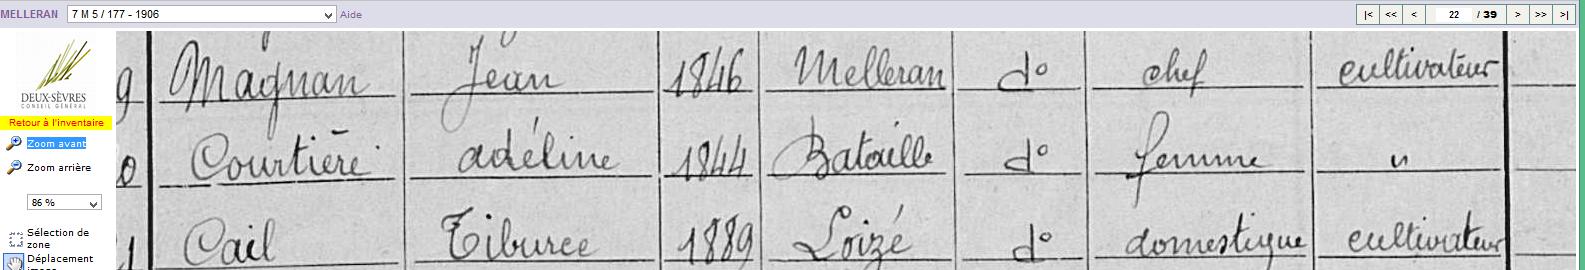 MELLERAN 7 M 5 / 177 - 1906 Aide |< << < 22 / 39 > >> >|
DEUX-SÈVRES
CONSEIL GÉNÉRAL
Retour à l'inventaire
Zoom avant
Zoom arrière
86 %
Sélection de
zone
Déplacement
image
9 Magnan Jean 1846 Melleran d° chef cultivateur
0 Courtière adéline 1844 Bataille d° femme "
1 Cail Tiburce 1889 Loizé d° domestique cultivateur